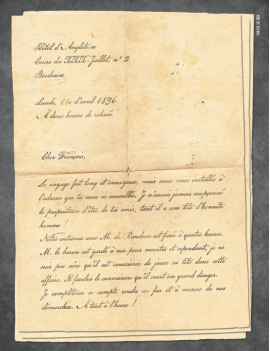 Hôtel d'Angleterre
Cours du XXX-Juillet, nº 2
Bordeaux
Lundi, d'avril 1896
A deux heures de relevée
Cher François,
Le voyage fut long et ennuyeux, mais nous nous installés à
l'adresse que tu nous as conseillée. Je n'aurais jamais soupçonné
le propriétaire d'être de tes amis, tant il a une tête d'honnête
homme !
Notre entrevue avec M. de est fixée à quatre heures.
M. le baron est gardé à vue pour meurtre et cependant, je ne
suis pas sûre qu'il ait conscience de jouer sa tête dans cette
affaire. Il faudra le convaincre qu'il court un grand danger.
Je compléterai ce compte rendu au fur et à mesure de nos
démarches. A tout à l'heure !